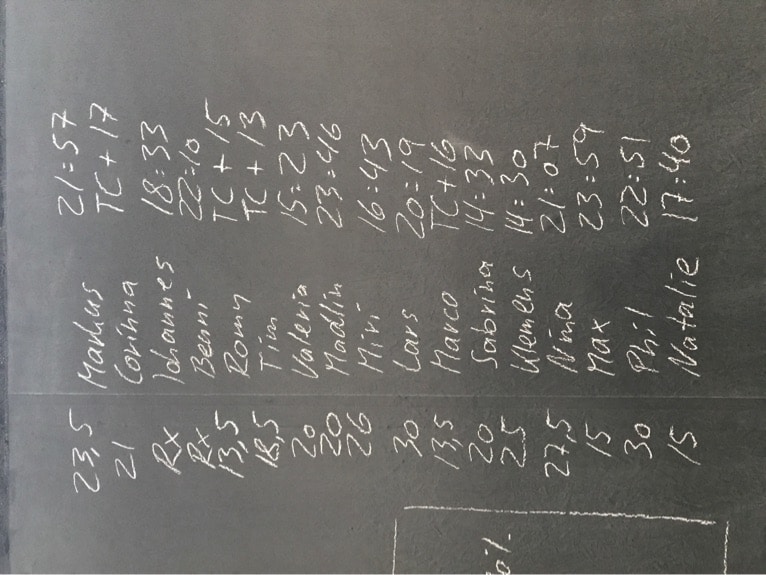 23,5 Markus 21:57
21 Corinna TC + 17
Rx Johannes 18:33
Rx Benni 22:10
13,5 Romy TC + 15
18,5 Tim TC + 13
20 Valeria 15:23
20 Madlin 23:46
26 Miri 16:43
30 Lars 20:19
13,5 Marco TC + 16
20 Sabrina 14:33
25 Klemens 14:30
27,5 Nina 21:07
15 Max 23:59
30 Phil 22:51
15 Natalie 17:40